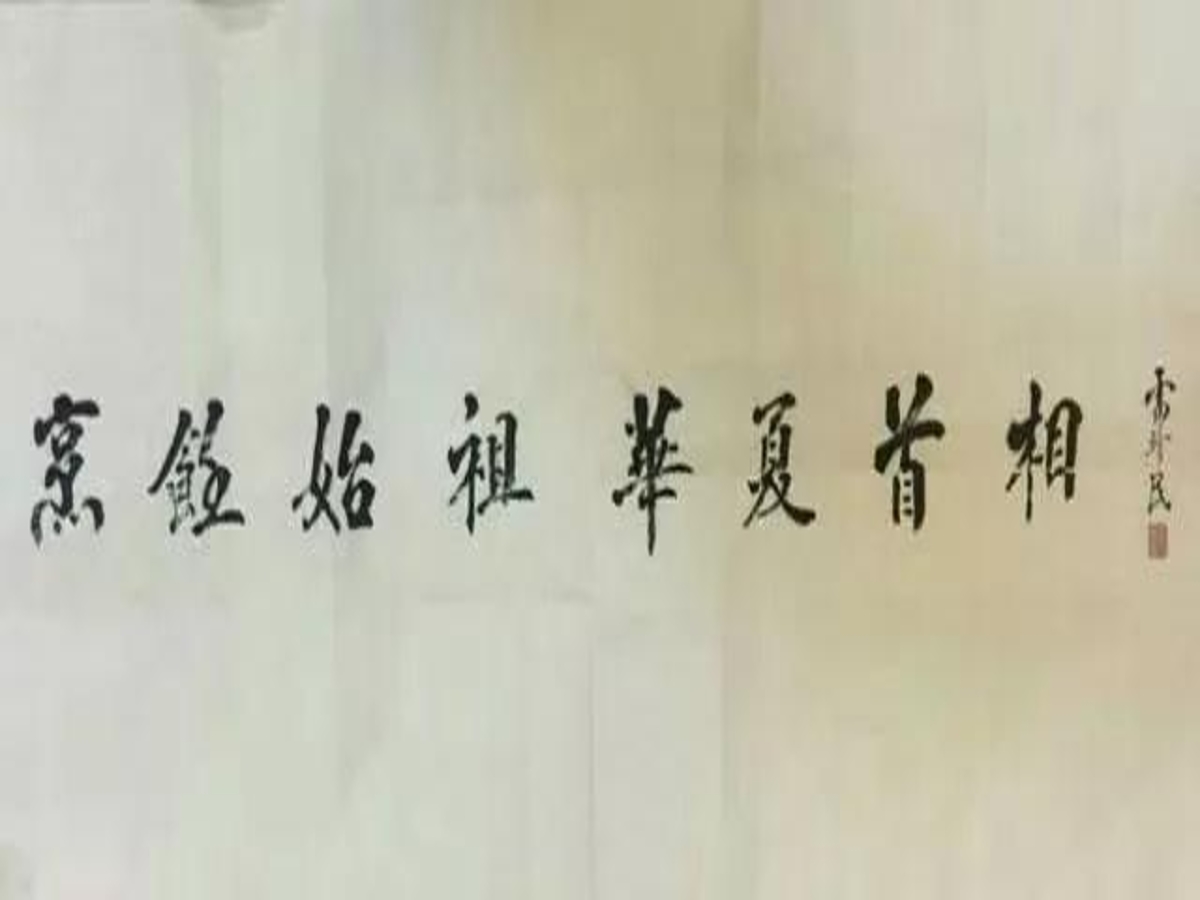 烹飪始祖華夏首相